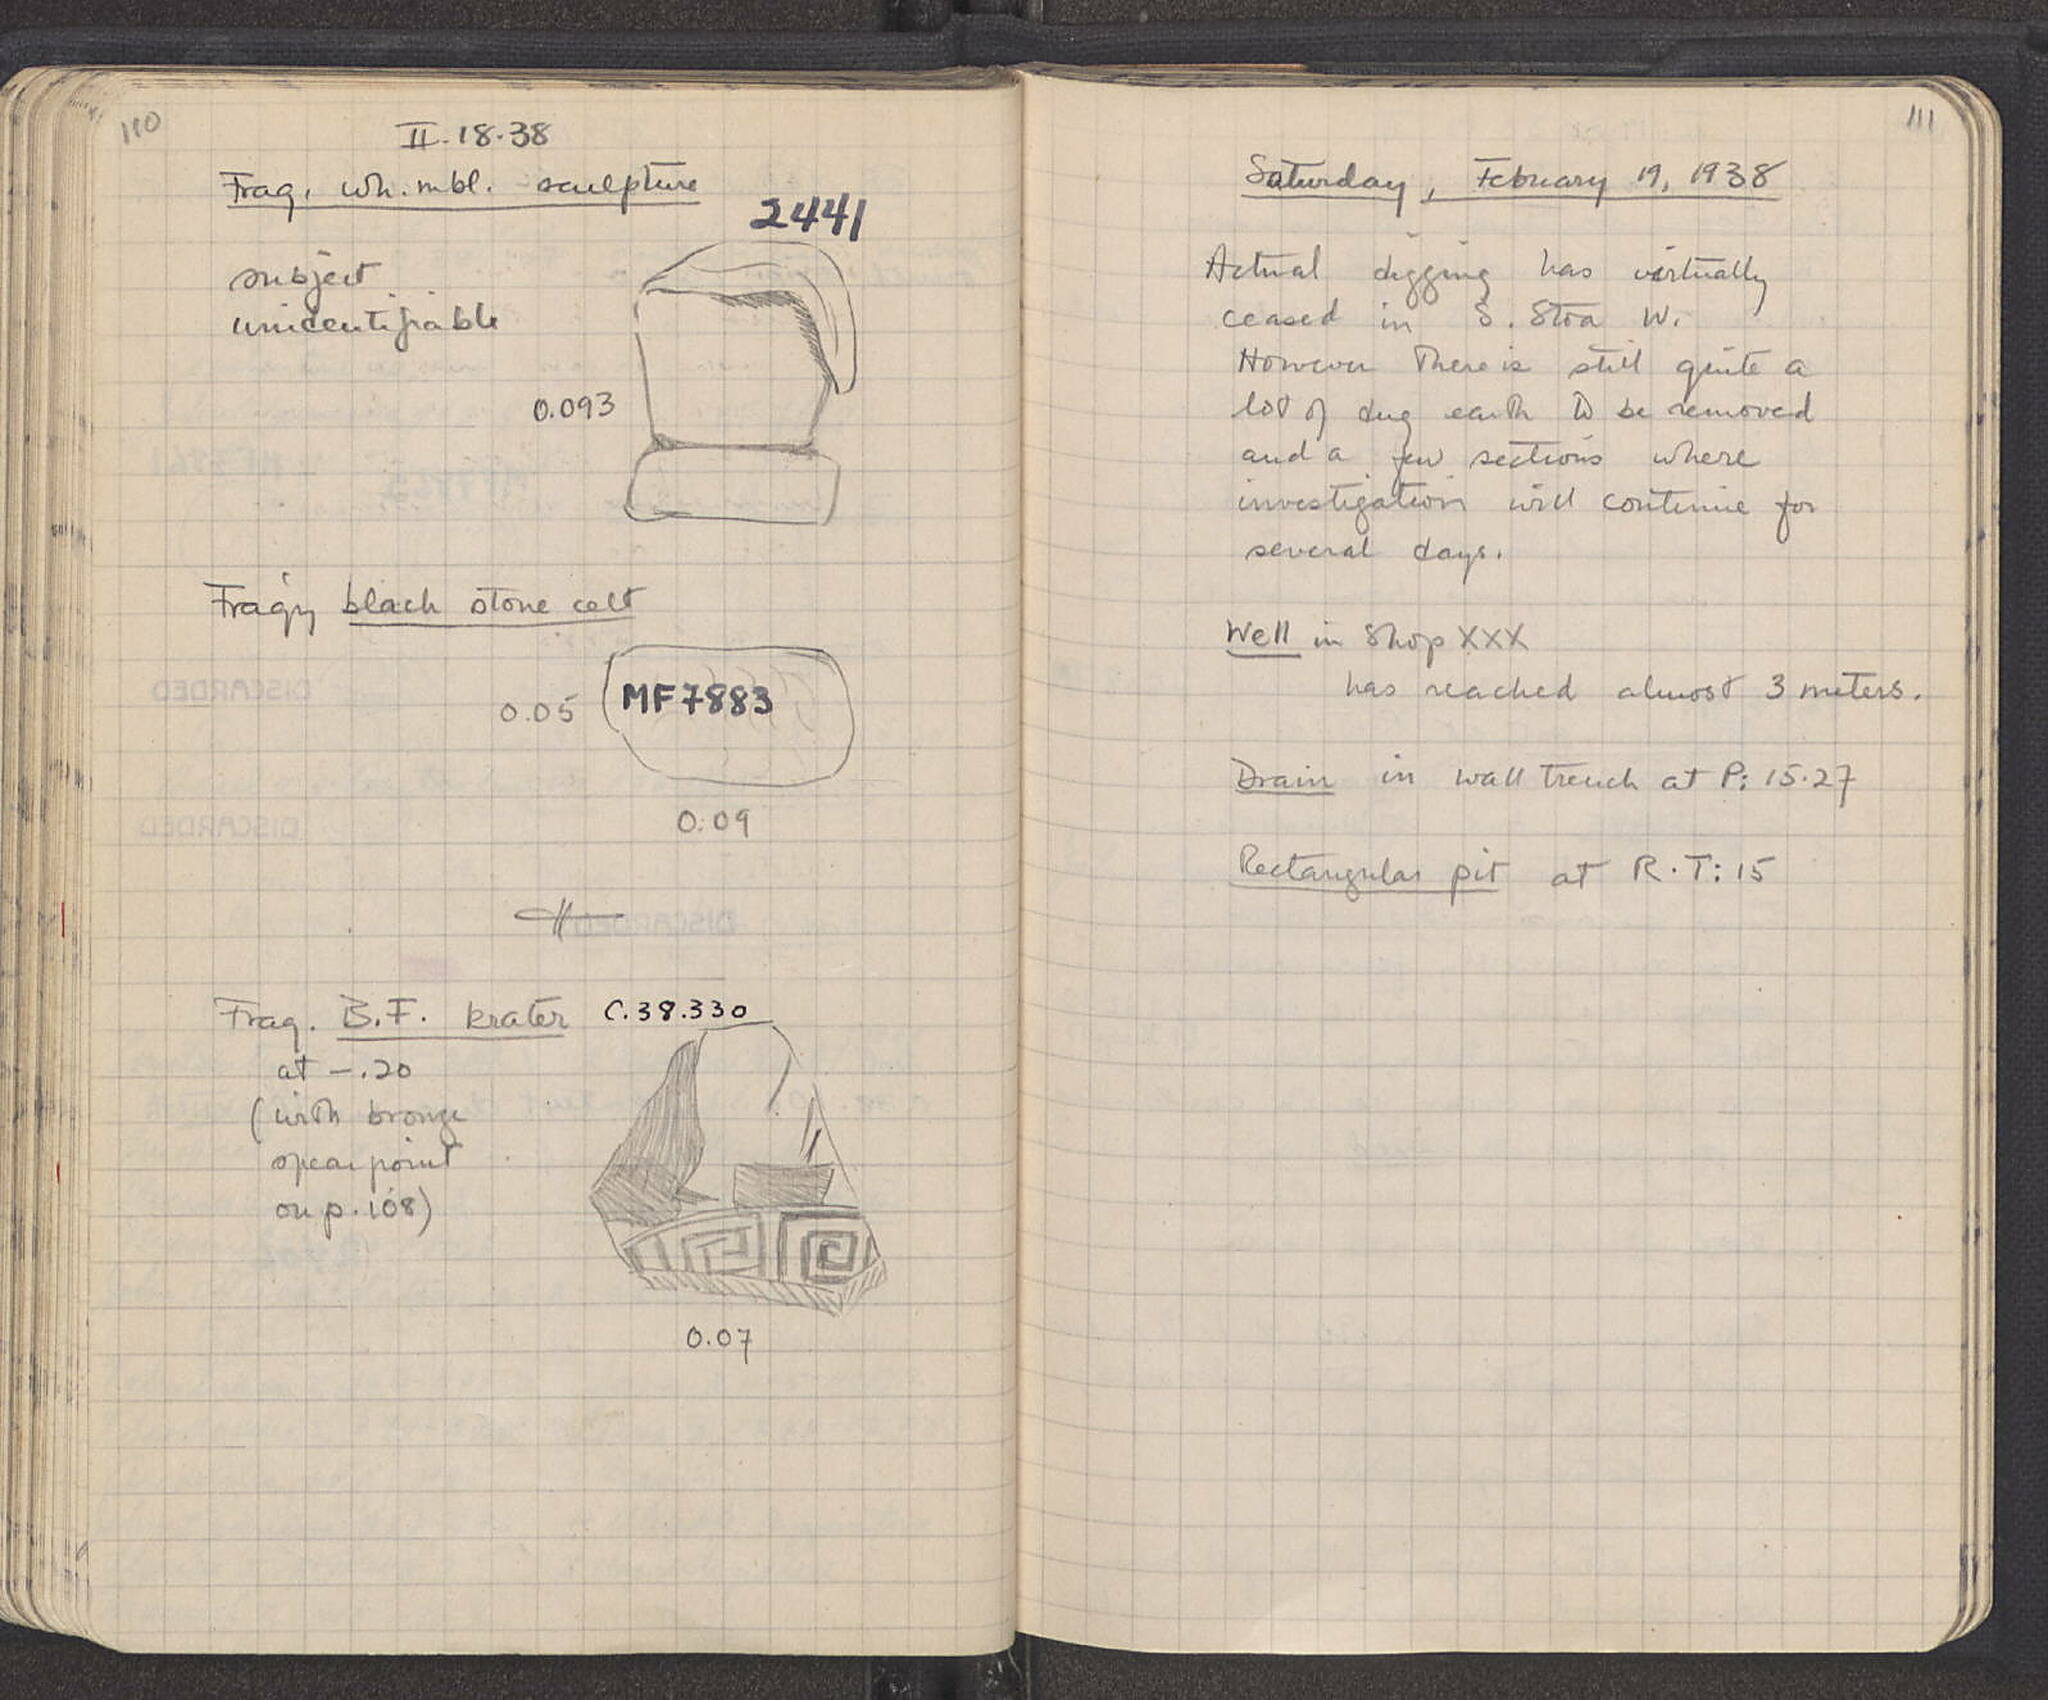 110
II.18.38
Frag. wh. mbl. sculpture
2441
subject
unidentifiable
0.093
Frag. black stone celt
MF 7883
0.05
0.09
Frag. B.F. krater C.38.330
at -.20
(with bronze
spear point
on p. 108)
0.07
111
Saturday, February 19, 1938
Actual digging has virtually
ceased in S. Stoa W.
However there is still quite a
lot of dug earth to be removed
and a few sections where
investigation will continue for
several days.
Well in Shop XXX
has reached almost 3 meters.
Drain in wall trench at P: 15.27
Rectangular pit at R.T: 15